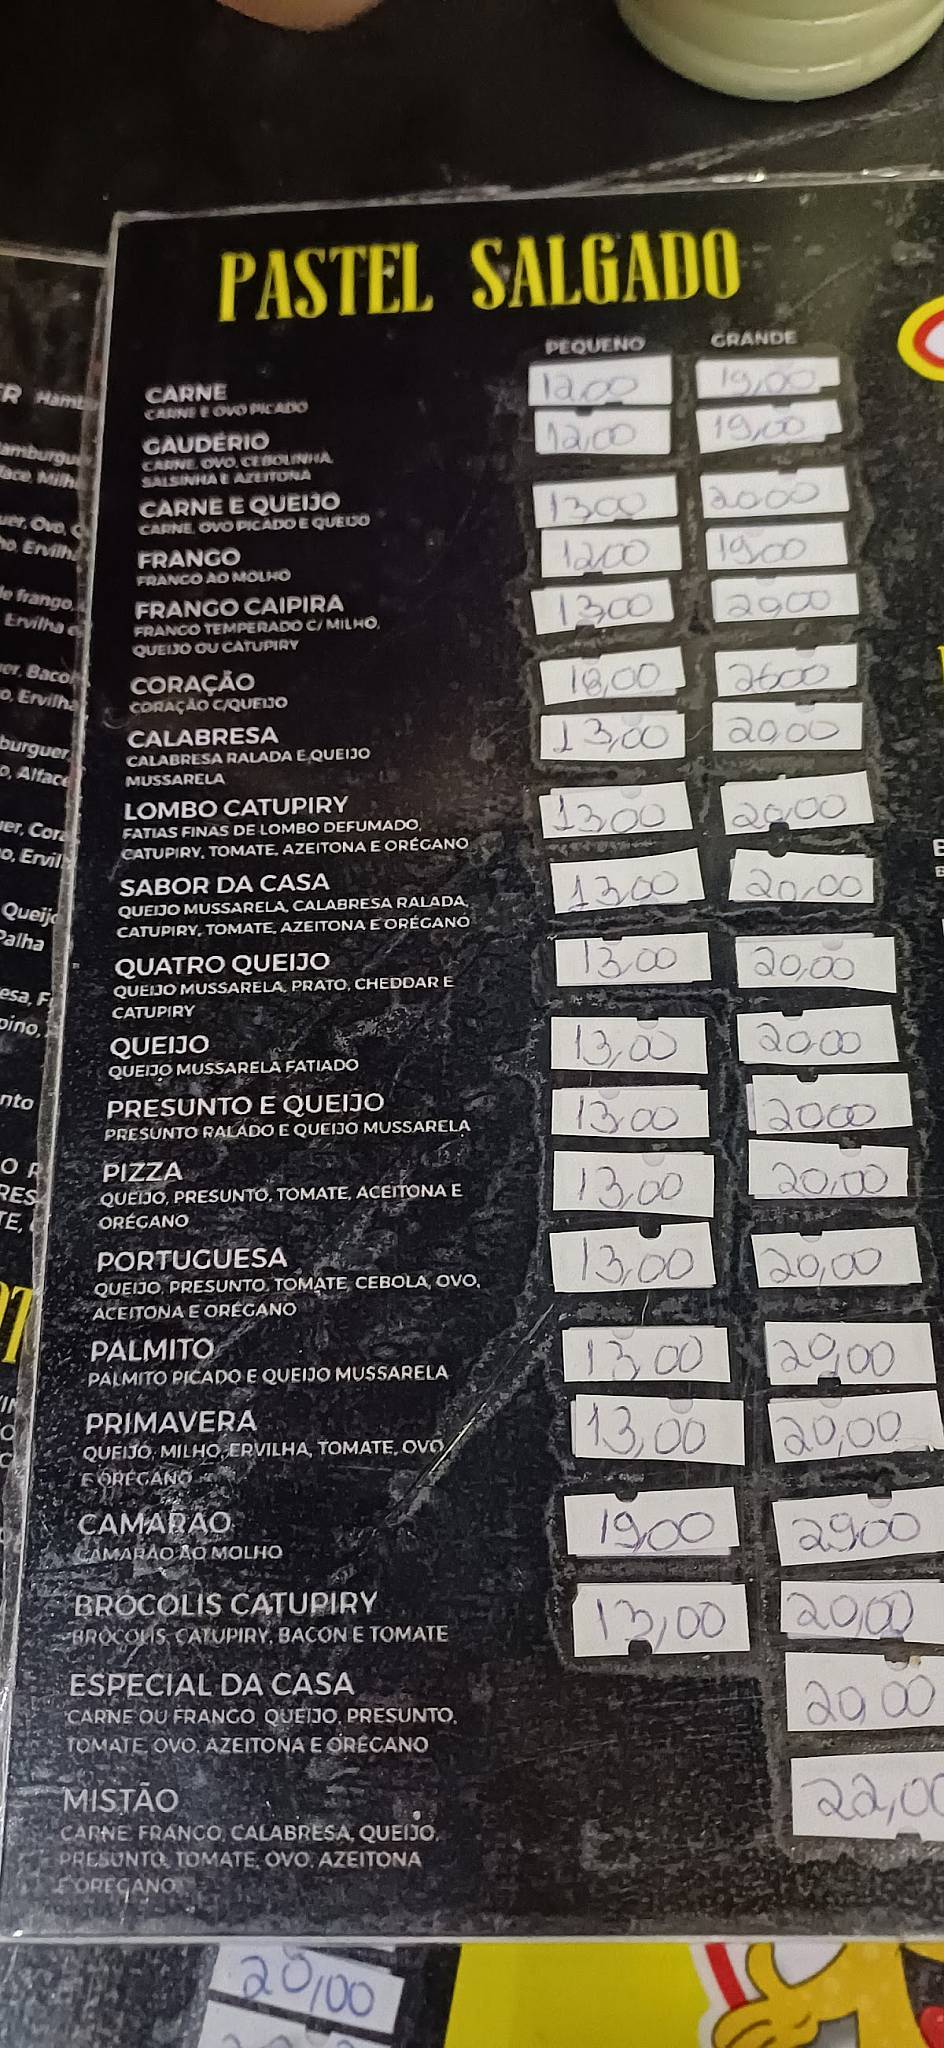 PASTEL SALGADO
PEQUENO GRANDE
CARNE 12,00 19,00
CARNE E OVO PICADO
GAUDÉRIO 12,00 19,00
CARNE, OVO, CEBOLINHA,
SALSINHA E AZEITONA
CARNE E QUEIJO 13,00 20,00
CARNE, OVO PICADO E QUEIJO
FRANGO 12,00 19,00
FRANGO AO MOLHO
FRANGO CAIPIRA 13,00 20,00
FRANGO TEMPERADO C/ MILHO,
QUEIJO OU CATUPIRY
CORAÇÃO 18,00 26,00
CORAÇÃO C/QUEIJO
CALABRESA 13,00 20,00
CALABRESA RALADA E QUEIJO
MUSSARELA
LOMBO CATUPIRY 13,00 20,00
FATIAS FINAS DE LOMBO DEFUMADO,
CATUPIRY, TOMATE, AZEITONA E ORÉGANO
SABOR DA CASA 13,00 20,00
QUEIJO MUSSARELA, CALABRESA RALADA,
CATUPIRY, TOMATE, AZEITONA E ORÉGANO
QUATRO QUEIJO 13,00 20,00
QUEIJO MUSSARELA, PRATO, CHEDDAR E
CATUPIRY
QUEIJO 13,00 20,00
QUEIJO MUSSARELA FATIADO
PRESUNTO E QUEIJO 13,00 20,00
PRESUNTO RALADO E QUEIJO MUSSARELA
PIZZA 13,00 20,00
QUEIJO, PRESUNTO, TOMATE, ACEITONA E
ORÉGANO
PORTUGUESA 13,00 20,00
QUEIJO, PRESUNTO, TOMATE, CEBOLA, OVO,
ACEITONA E ORÉGANO
PALMITO 13,00 20,00
PALMITO PICADO E QUEIJO MUSSARELA
PRIMAVERA 13,00 20,00
QUEIJO, MILHO, ERVILHA, TOMATE, OVO
E ORÉGANO
CAMARÃO 19,00 29,00
CAMARÃO AO MOLHO
BRÓCOLIS CATUPIRY 13,00 20,00
BRÓCOLIS, CATUPIRY, BACON E TOMATE
ESPECIAL DA CASA 20,00
CARNE OU FRANGO, QUEIJO, PRESUNTO,
TOMATE, OVO, AZEITONA E ORÉGANO
MISTÃO 22,00
CARNE, FRANGO, CALABRESA, QUEIJO,
PRESUNTO, TOMATE, OVO, AZEITONA
E ORÉGANO
20,00